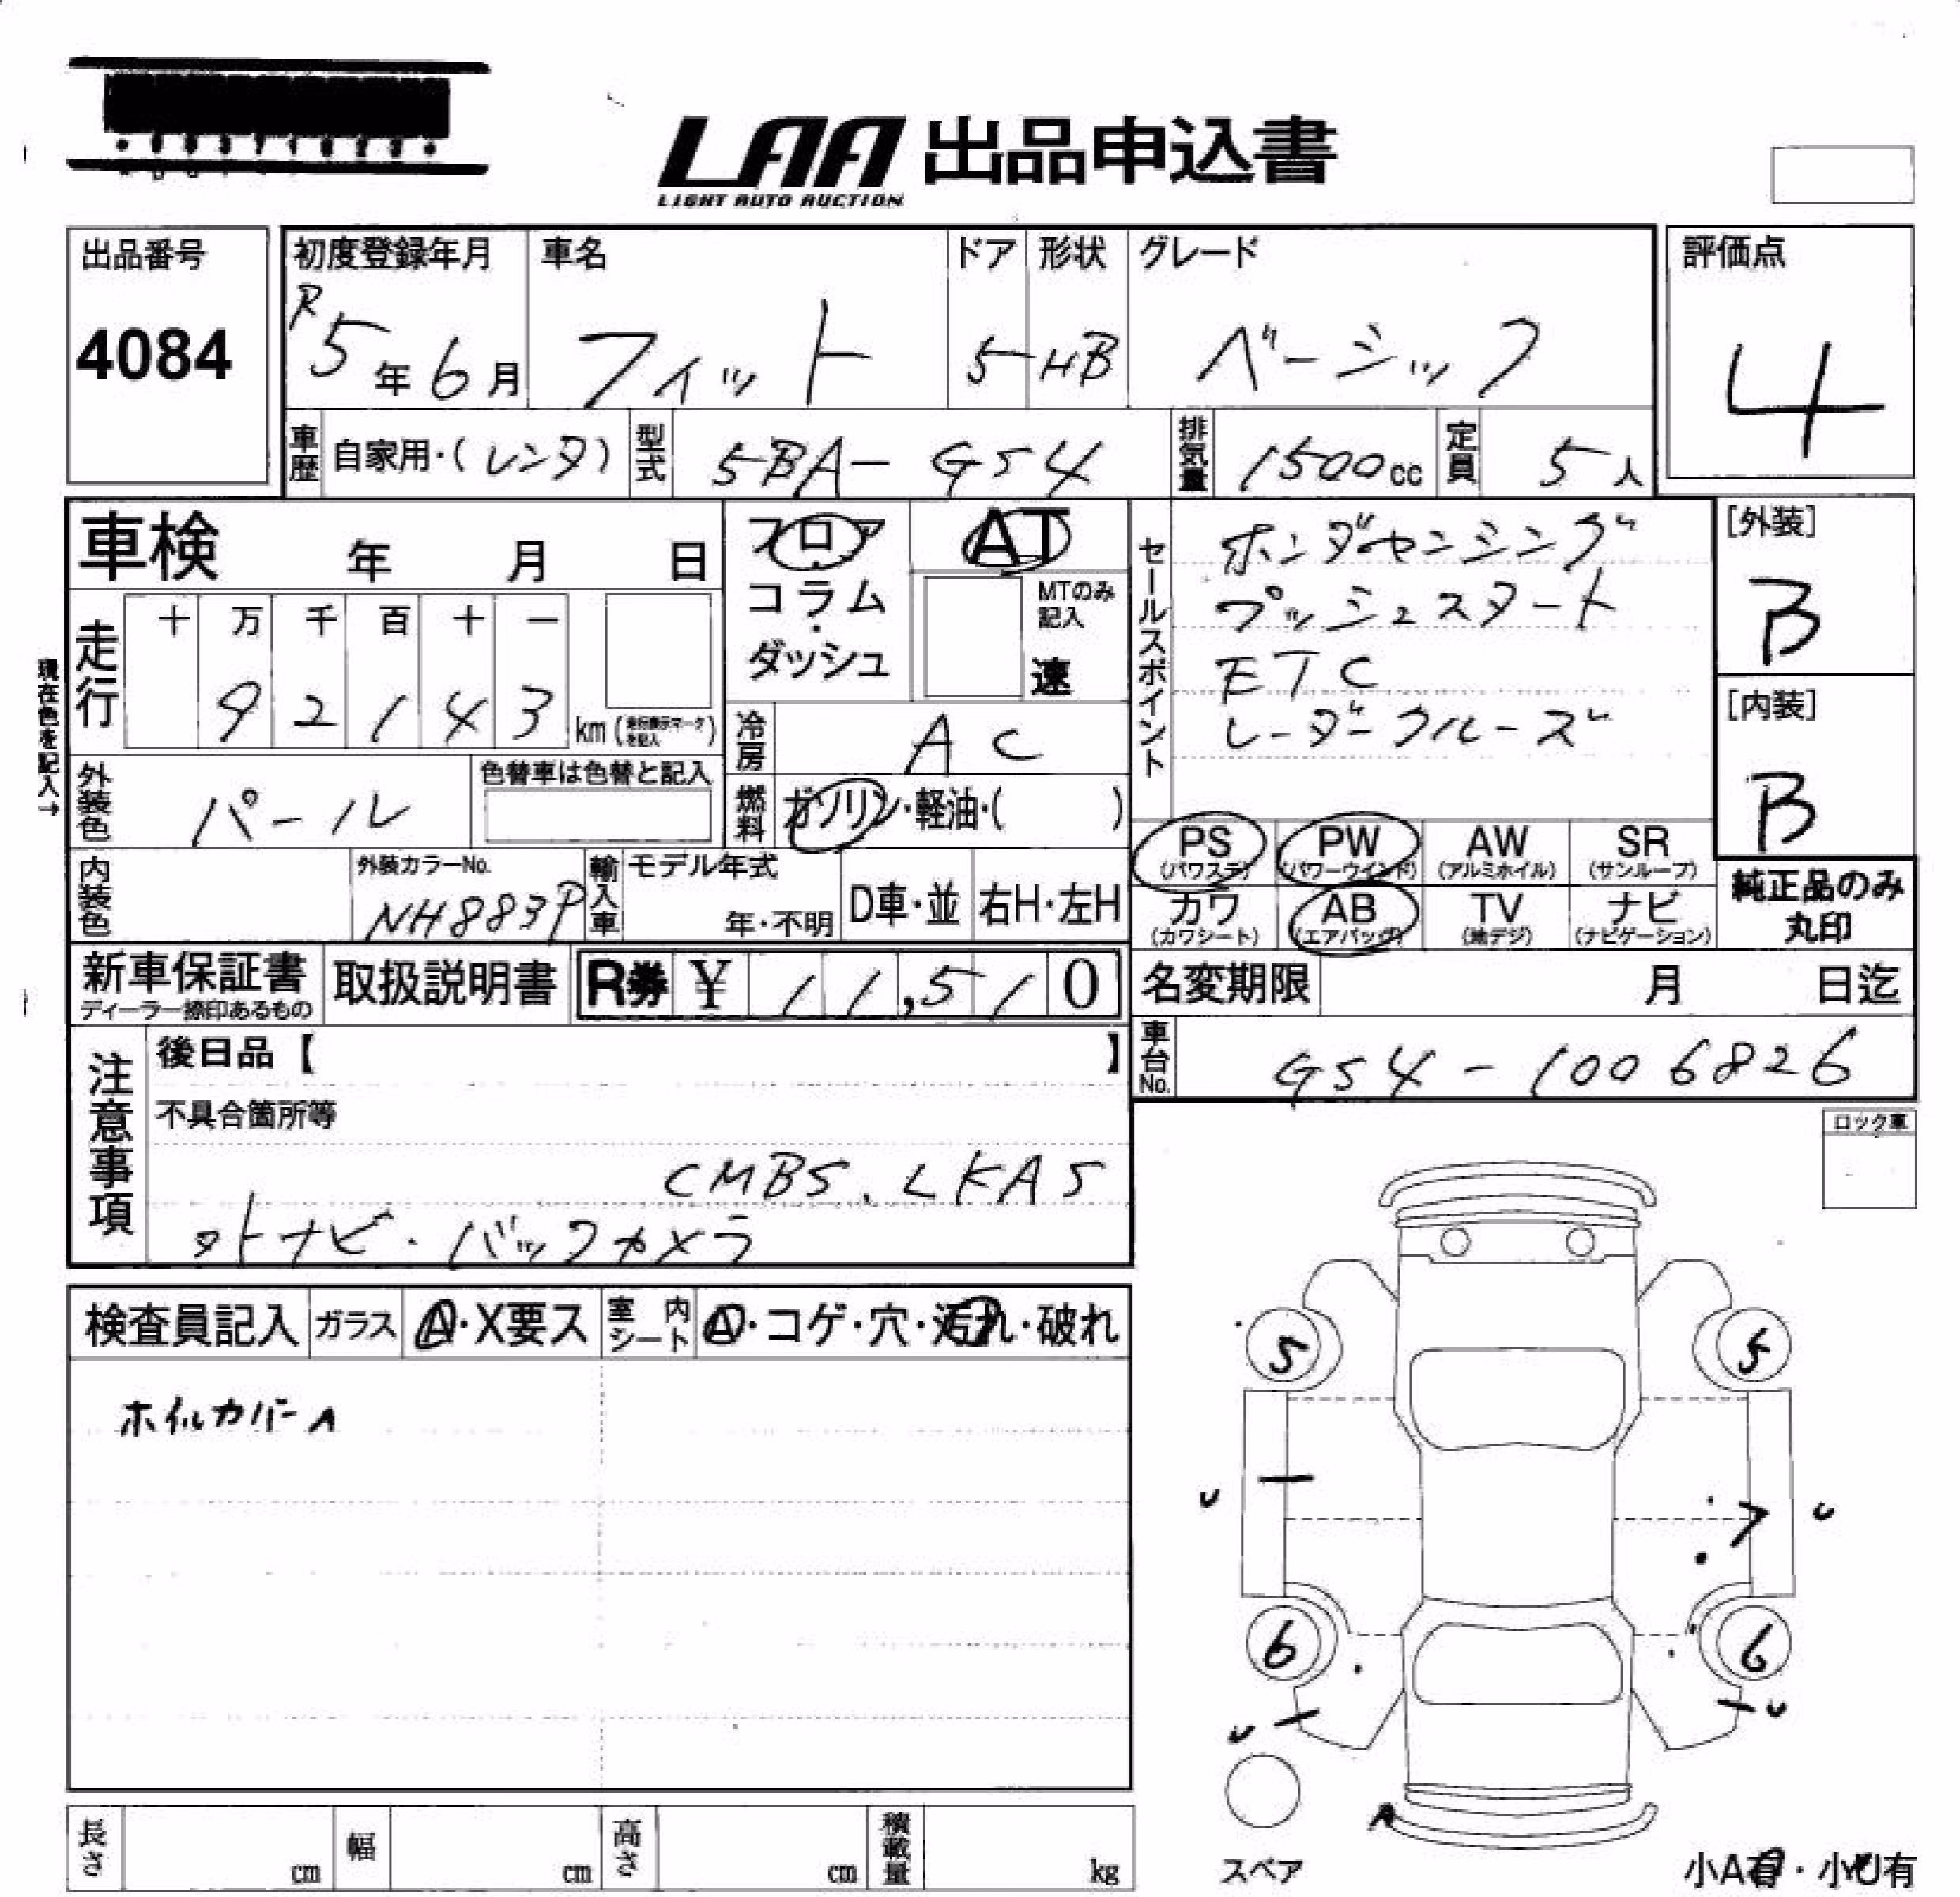 LAA 出品申込書
LIGHT AUTO AUCTION
出品番号
4084
初度登録年月
R5年6月
車名
フィット
ドア
5
形状
HB
グレード
ベーシック
評価点
4
車歴
自家用・(レンタ)
型式
5BA-GS4
排気量
1500cc
定員
5人
車検 年 月 日
フロア
・
コラム
・
ダッシュ
AT
MTのみ
記入
速
セールスポイント
ホンダセンシング
プッシュスタート
ETC
レーダークルーズ
[外装]
B
[内装]
B
現在色を記入→
走行
十 万 千 百 十 一
9 2 1 4 3
km(走行表示マークを記入)
冷房
AC
外装色
パール
色替車は色替と記入
燃料
ガソリン・軽油・( )
PS
(パワステ)
PW
(パワーウインド)
AW
(アルミホイル)
SR
(サンルーフ)
カワ
(カワシート)
AB
(エアバッグ)
TV
(地デジ)
ナビ
(ナビゲーション)
純正品のみ
丸印
内装色
外装カラーNo.
NH883P
輸入車
モデル年式
年・不明
D車・並
右H・左H
新車保証書
ディーラー捺印あるもの
取扱説明書
R券 ¥ 11,510
名変期限 月 日迄
車台No.
GS4-1006826
注意事項
後日品【 】
不具合箇所等
CMBS、LKAS
外ナビ・バックカメラ
ロック車
検査員記入
ガラス
A・X要ス
室内シート
A・コゲ・穴・汚れ・破れ
ホイルカバーA
5
5
U
U
6
6
U
U
A
スペア
小A有・小U有
長さ cm
幅 cm
高さ cm
積載量 kg